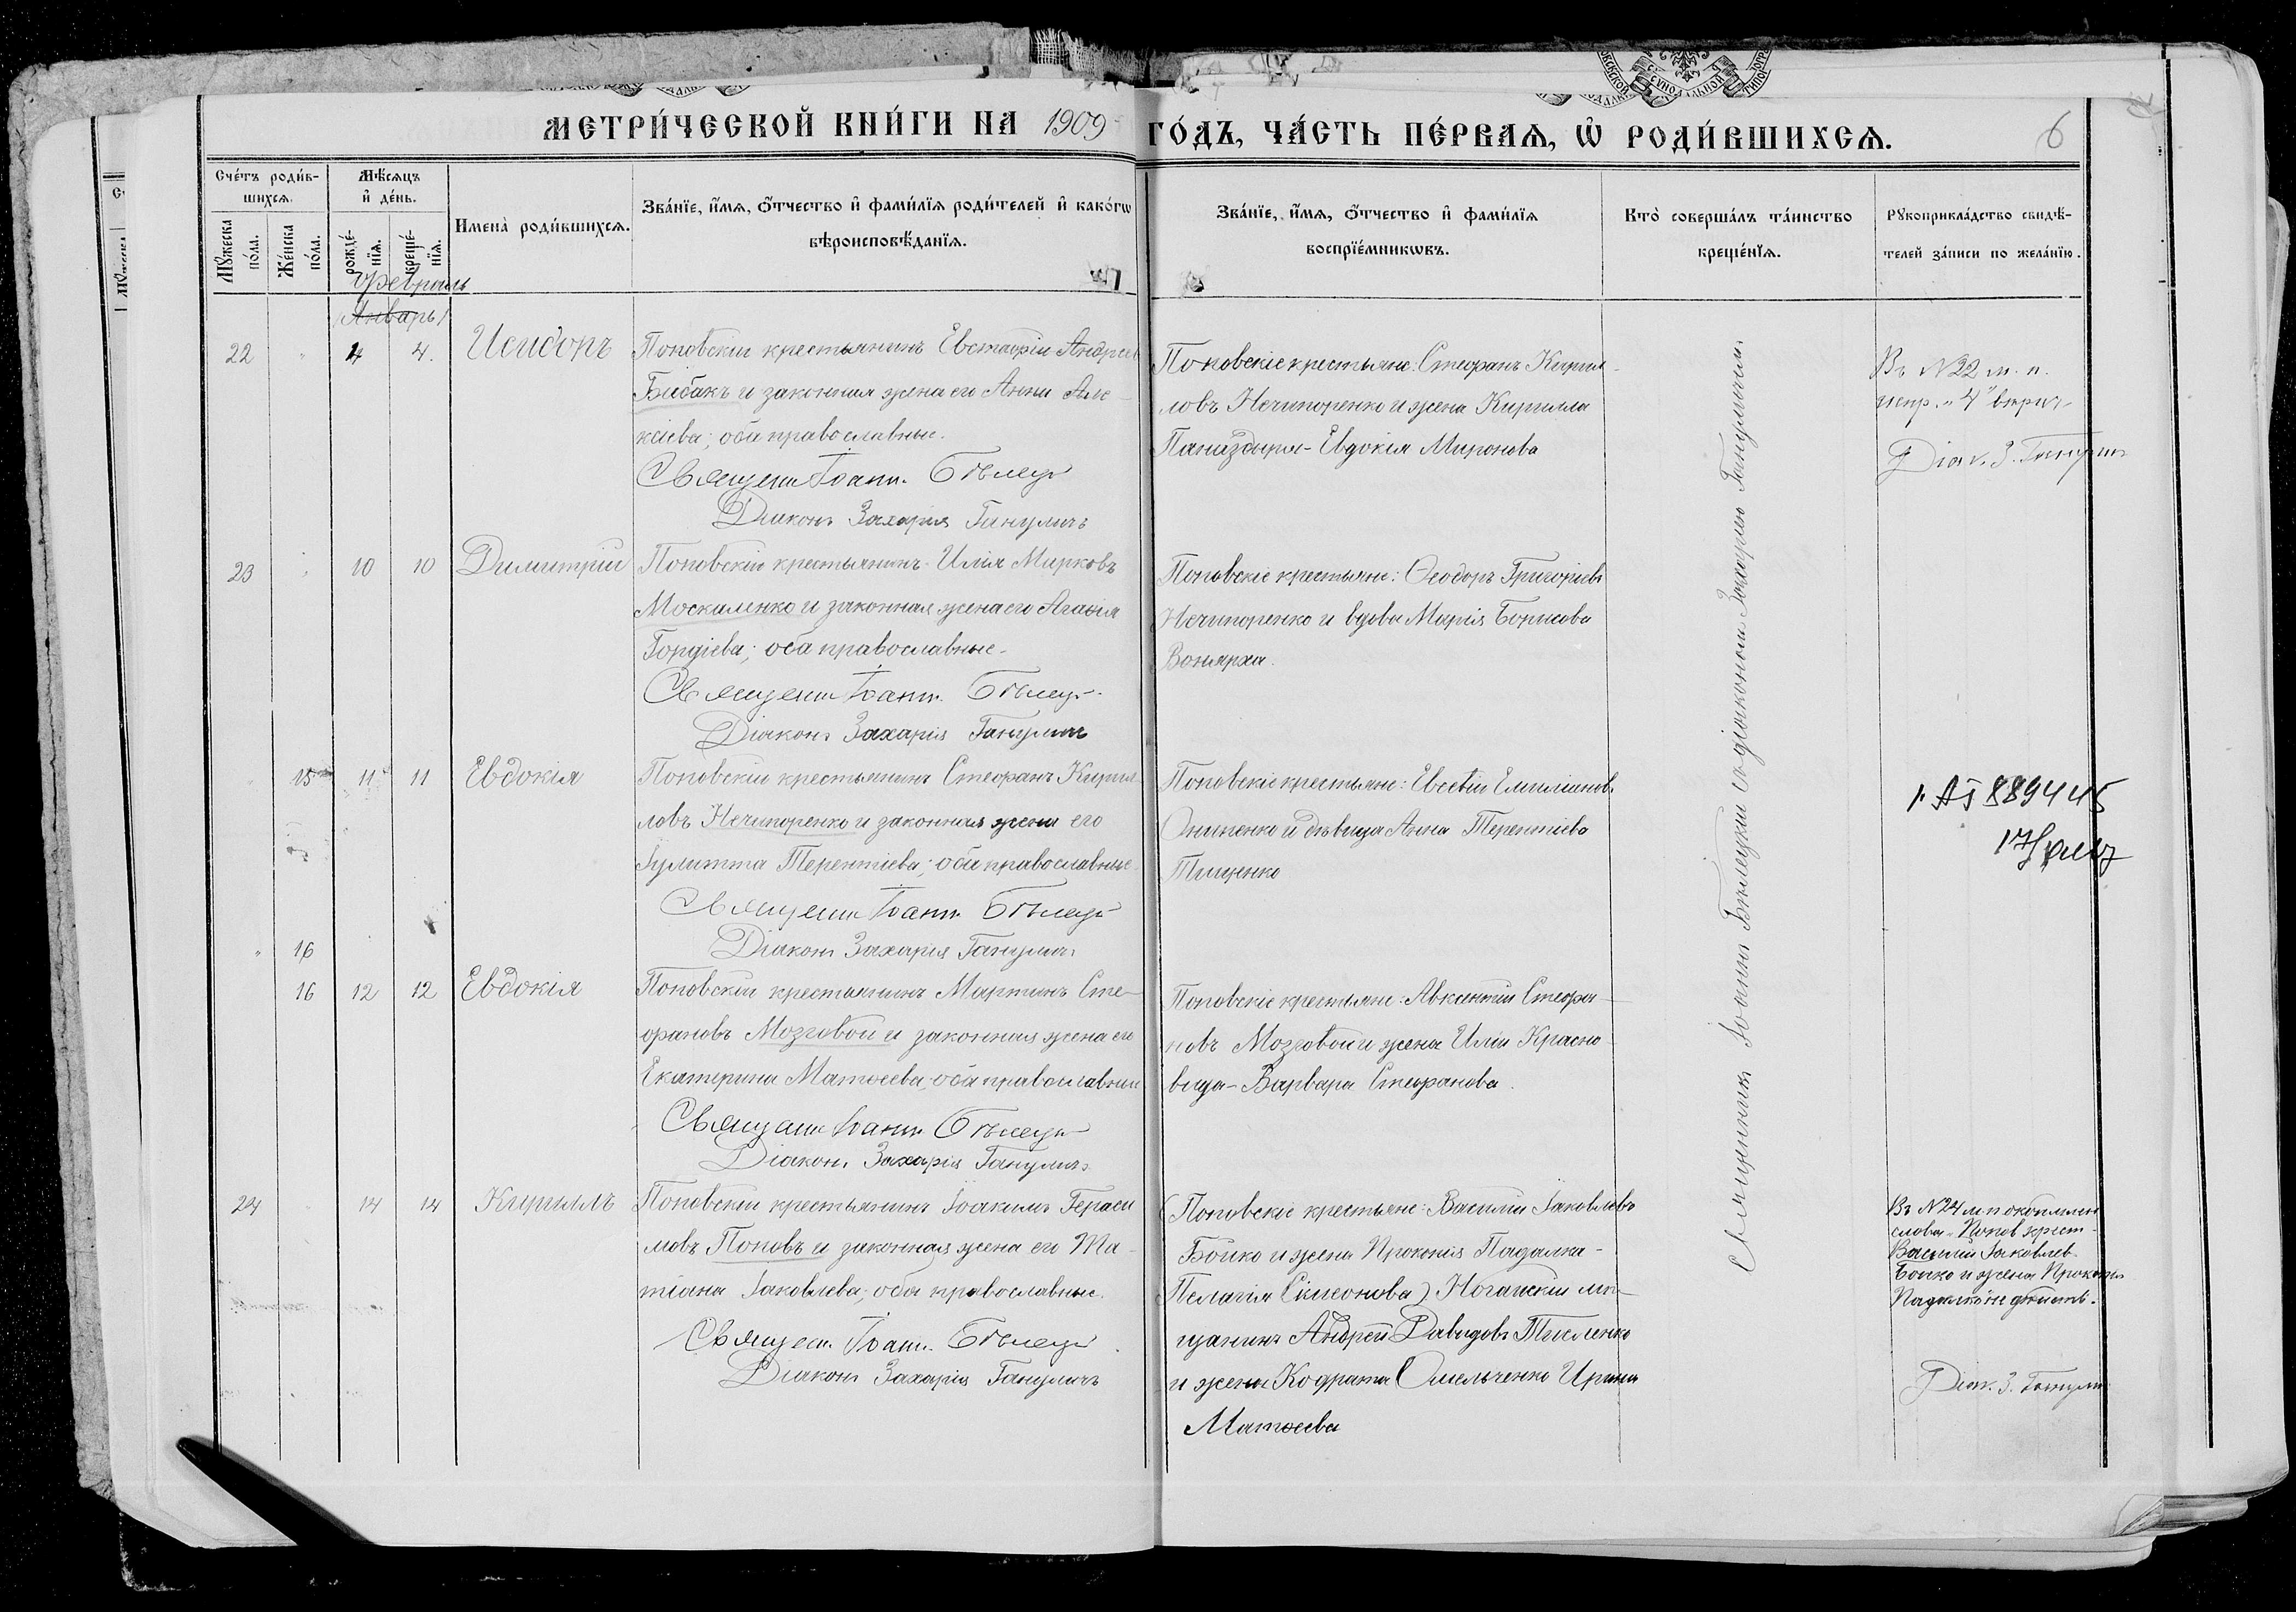 МЕТРИ́ЧЕСКОЙ КНИ́ГИ НА 1909 ГО́ДЪ, ЧА́СТЬ ПЕ́РВАЯ, Ѡ҆ РОДИ́ВШИХСЯ.
6
Сче́тъ роди́в-
шихся.
Мѣ́сяцъ
и҆ де́нь.
Имена̀ роди́вшихся.
Зва́нїе, и҆́мя, ѻ҆́тчество и҆ фами́лїя роди́телей и҆ како́гѡ
вѣроисповѣ́данїя.
Зва́нїе, и҆́мя, ѻ҆́тчество и҆ фами́лїя
воспрїе́мникѡвъ.
Кто̀ соверша́лъ та́инство
креще́нїя.
Рꙋкоприкла́дство свидѣ́-
телей за́писи по жела́нїю.
Мꙋ́жеска
по́ла.
Же́нска
по́ла.
рожде́-
нїя.
креще́-
нїя.
Февраль
Январь
22 " 4 4. Исидоръ
Поповскій крестьянинъ Евстафій Андреевъ
Бибакъ и законная жена его Анна Але-
ксіева; оба православные.
Священ. Іоанн. Бѣлец
Діаконъ Захарія Ганулич
Поповскіе крестьяне: Стефанъ Кирил-
ловъ Нечипоренко и жена Кирилла
Паниздыря - Евдокія Миронова
Въ №22 м. п.
испр. "4"
Діак. З. Ганулич
23 " 10 10 Димитрій
Поповскій крестьянинъ Илія Марковъ
Москаленко и законная жена его Агафія
Гордіева; оба православные.
Священ. Іоанн. Бѣлец
Діаконъ Захарія Ганулич
Поповскіе крестьяне: Ѳеодоръ Григоріевъ
Нечипоренко и вдова Марія Борисова
Вонярха.
" 15 11 11 Евдокія
Поповскій крестьянинъ Стефанъ Кирил-
ловъ Нечипоренко и законная жена его
Іулитта Терентіева; оба православные.
Священ. Іоанн. Бѣлец
Діаконъ Захарія Ганулич
Поповскіе крестьяне: Евсевій Емиліановъ
Онипенко и дѣвица Анна Терентіева
Тищенко
889445
" 16
16 12 12 Евдокія
Поповскій крестьянинъ Мартинъ Сте-
фановъ Мозговой и законная жена его
Екатерина Матѳеева; оба православные
Священ. Іоанн. Бѣлец
Діаконъ Захарія Ганулич
Поповскіе крестьяне: Авксентій Стефа-
новъ Мозговой и жена Иліи Красно-
вида - Варвара Стефанова.
24 " 14 14 Кириллъ
Поповскій крестьянинъ Іоакимъ Гераси-
мовъ Поповъ и законная жена его Та-
тіана Іаковлева; оба православные.
Священ. Іоанн. Бѣлец
Діаконъ Захарія Гануличъ
(Поповскіе крестьяне: Василій Іаковлевъ
Бойко и жена Прокопія Падалка -
Пелагія Симеонова) Ногайскій мѣ-
щанинъ Андрей Давидовъ Тисленко
и жена Кодрата Омельченко Ирина
Матѳеева
Въ №24 м. п. окоплен.
слова "Попов. крест.
Василій Іаковлев.
Бойко и жена Прокопія
Падалка" не дѣйств.
Діак. З. Ганулич
Священникъ Іоаннъ Бѣлецкій съ діакономъ Захаріею Гануличем.